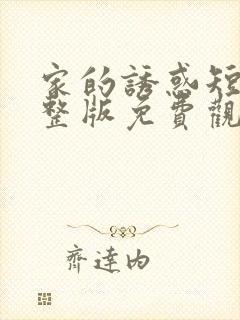 家的誘惑短
整版免費觀
齊達內